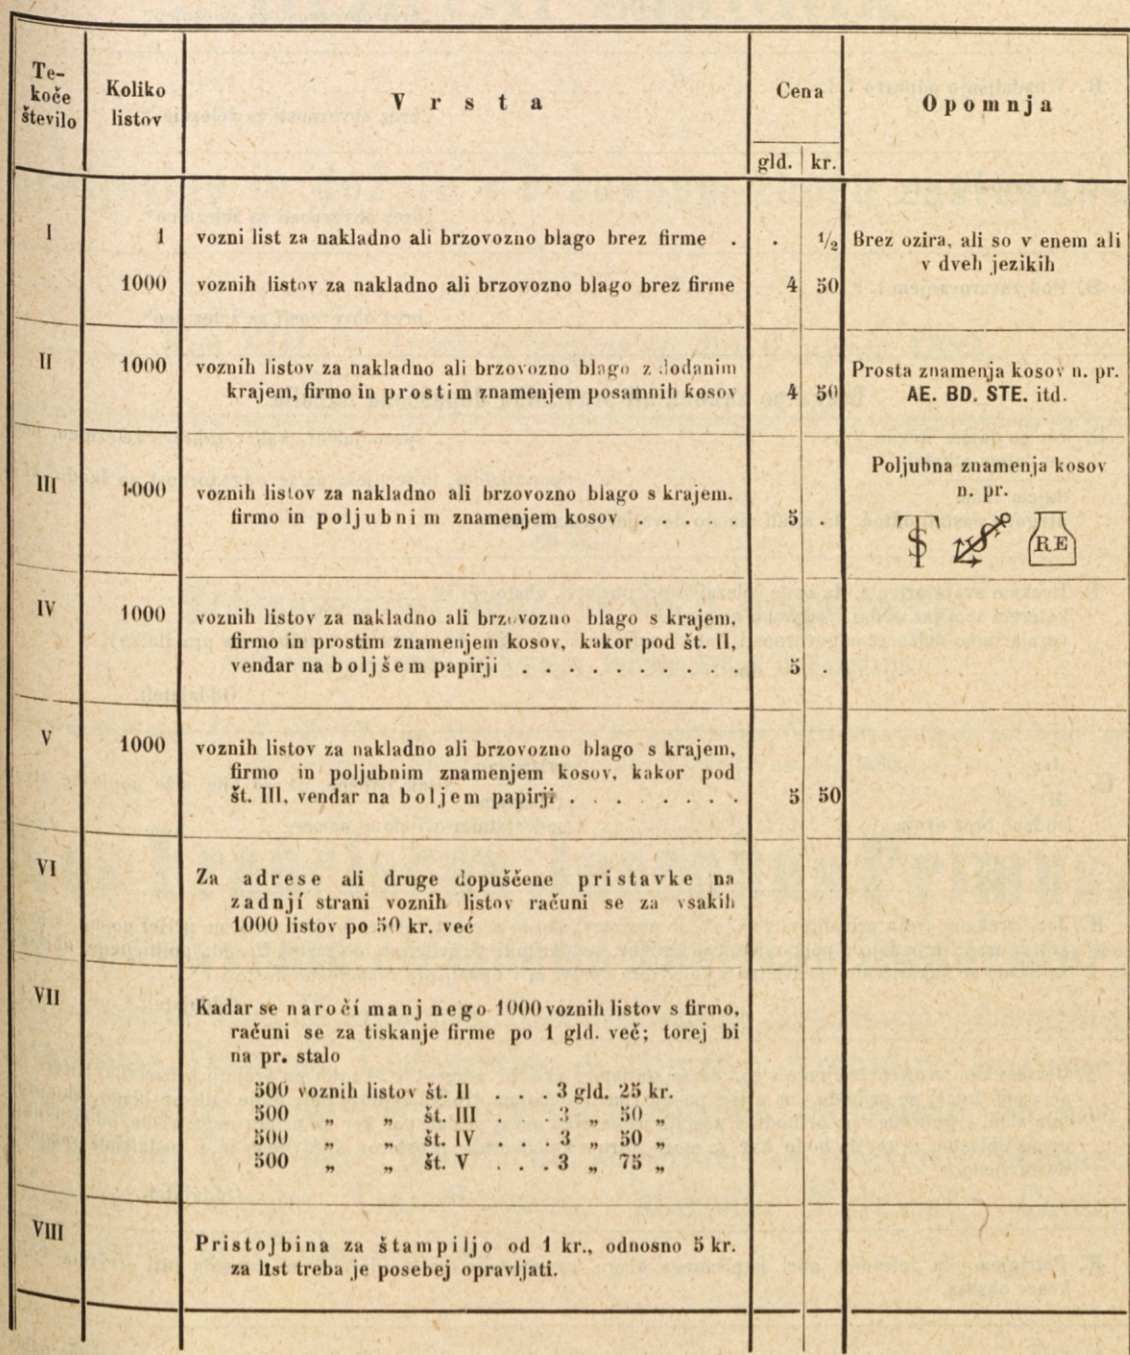 Te-
koče
število
Koliko
listov
Vrsta
Cena
gld. kr.
Opomnja
I 1 vozni list za nakladno ali brzovozno blago brez firme . . ½ Brez ozira, ali so v enem ali
v dveh jezikih
1000 voznih listov za nakladno ali brzovozno blago brez firme 4 50
II 1000 voznih listov za nakladno ali brzovozno blago z dodanim
krajem, firmo in prostim znamenjem posamnih kosov 4 50
Prosta znamenja kosov n. pr.
AE. BD. STE. itd.
III 1000 voznih listov za nakladno ali brzovozno blago s krajem,
firmo in poljubnim znamenjem kosov . . . . . 5 .
Poljubna znamenja kosov
n. pr.
RE
IV 1000 voznih listov za nakladno ali brzovozno blago s krajem,
firmo in prostim znamenjem kosov, kakor pod št. II,
vendar na boljšem papirji . . . . . . . . . . 5 .
V 1000 voznih listov za nakladno ali brzovozno blago s krajem,
firmo in poljubnim znamenjem kosov, kakor pod
št. III, vendar na boljem papirji . . . . . . . . 5 50
VI Za adrese ali druge dopuščene pristavke na
zadnji strani voznih listov računi se za vsakih
1000 listov po 50 kr. več
VII Kadar se naroči manj nego 1000 voznih listov s firmo,
računi se za tiskanje firme po 1 gld. več; torej bi
na pr. stalo
500 voznih listov št. II . . . 3 gld. 25 kr.
500 „ „ št. III . . . 3 „ 50 „
500 „ „ št. IV . . . 3 „ 50 „
500 „ „ št. V . . . 3 „ 75 „
VIII Pristojbina za štampiljo od 1 kr., odnosno 5 kr.
za list treba je posebej opravljati.